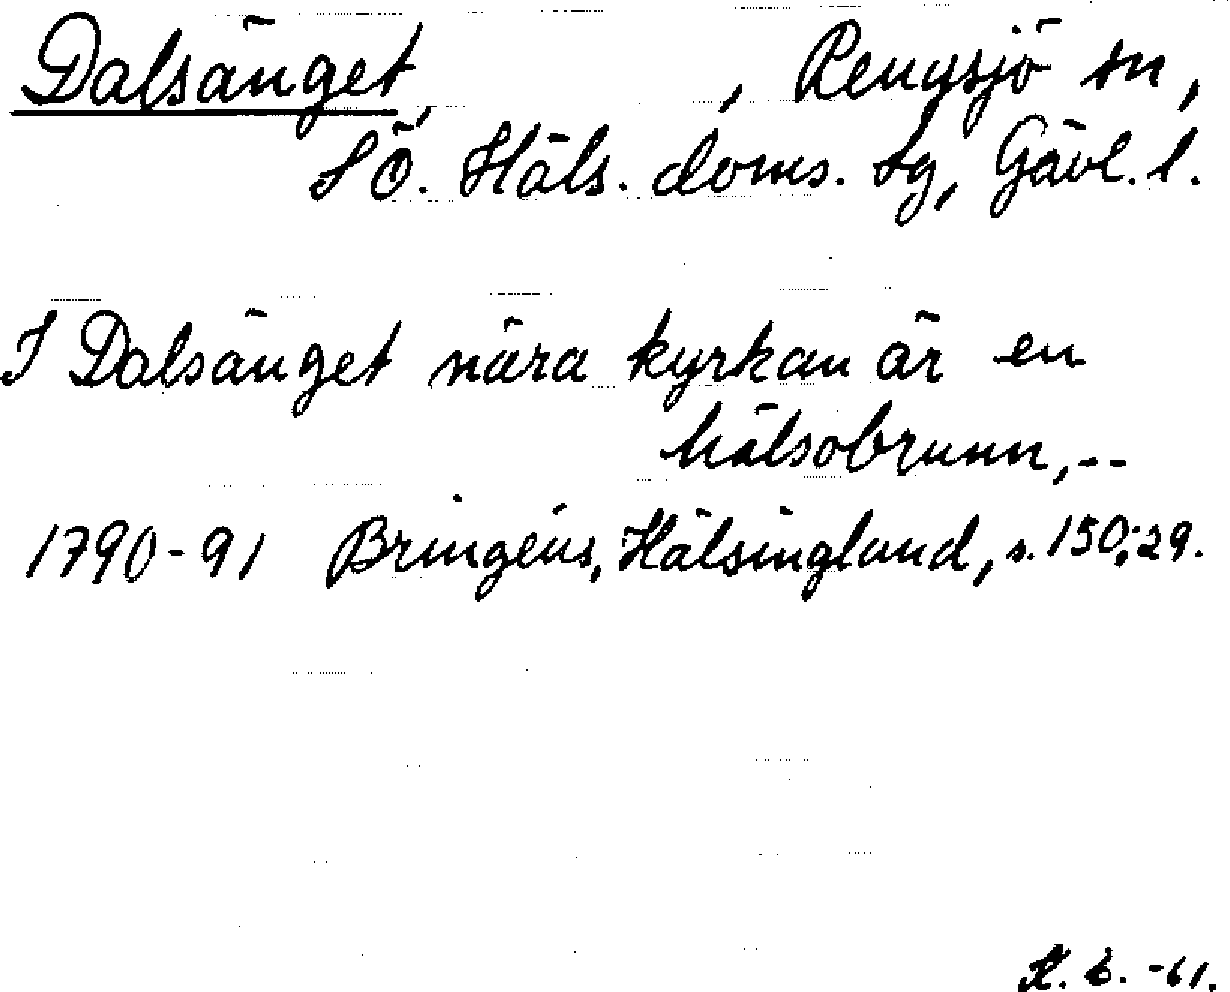 Dalsänget, , Rengsjö sn,
SÖ. Häls. doms. tg, Gävl. l.
I Dalsänget nära kyrkan är en
hälsobrunn,--
1790-91 Bringéus, Hälsingland, s. 150; 29.
-61.